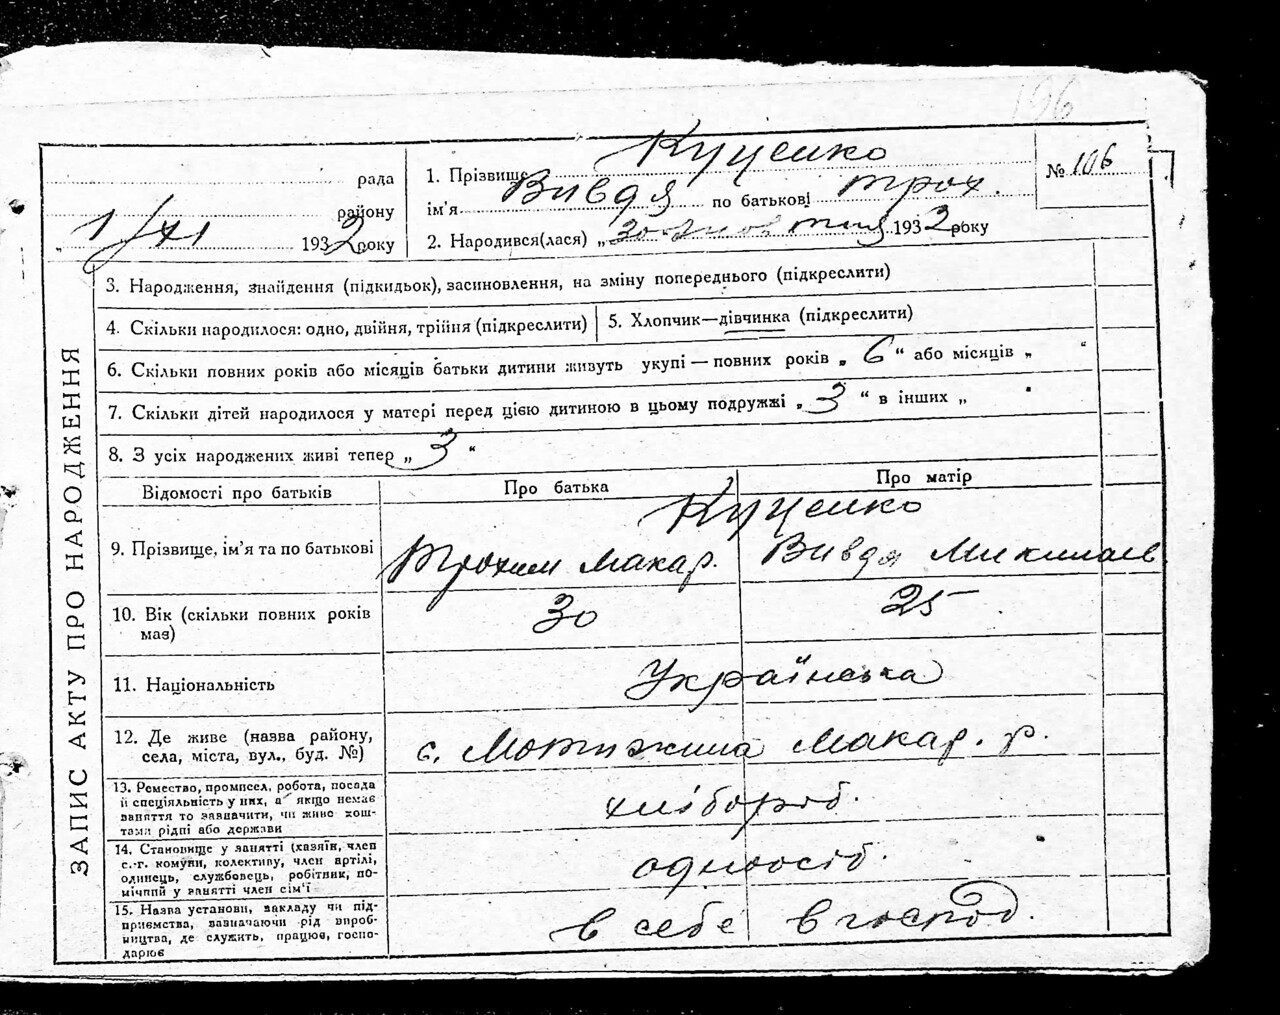 196
рада
району
„ 1/XI 1932 року
1. Прізвище Куценко
ім'я Вивдя по батькові трох.
2. Народився(лася) „30 жовтня 1932 року
№ 106
ЗАПИС АКТУ ПРО НАРОДЖЕННЯ
3. Народження, знайдення (підкидьок), засиновлення, на зміну попереднього (підкреслити)
4. Скільки народилося: одно, двійня, трійня (підкреслити)
5. Хлопчик—дівчинка (підкреслити)
6. Скільки повних років або місяців батьки дитини живуть укупі — повних років „ 6 “ або місяців „ “
7. Скільки дітей народилося у матері перед цією дитиною в цьому подружжі „ 3 “ в інших „ “
8. З усіх народжених живі тепер „ 3 “
Відомості про батьків
Про батька
Про матір
9. Прізвище, ім'я та по батькові
Куценко
Трохим Макар.
Вивдя Миколаєв
10. Вік (скільки повних років
має)
30
25
11. Національність
Українська
12. Де живе (назва району,
села, міста, вул., буд. №)
с. Мотижина Макар. р.
13. Ремество, промисел, робота, посада
й спеціяльність у них, а якщо немає
заняття то зазначити, чи живе кош-
тами рідні або держави
хлібороб.
14. Становище у занятті (хазяїн, член
с.-г. комуни, колективу, член артілі,
одинець, службовець, робітник, по-
мічний у занятті член сім'ї
одноосіб.
15. Назва установи, закладу чи під-
приємства, зазначаючи рід вироб-
ництва, де служить, працює, госпо-
дарює
в себе в господ.